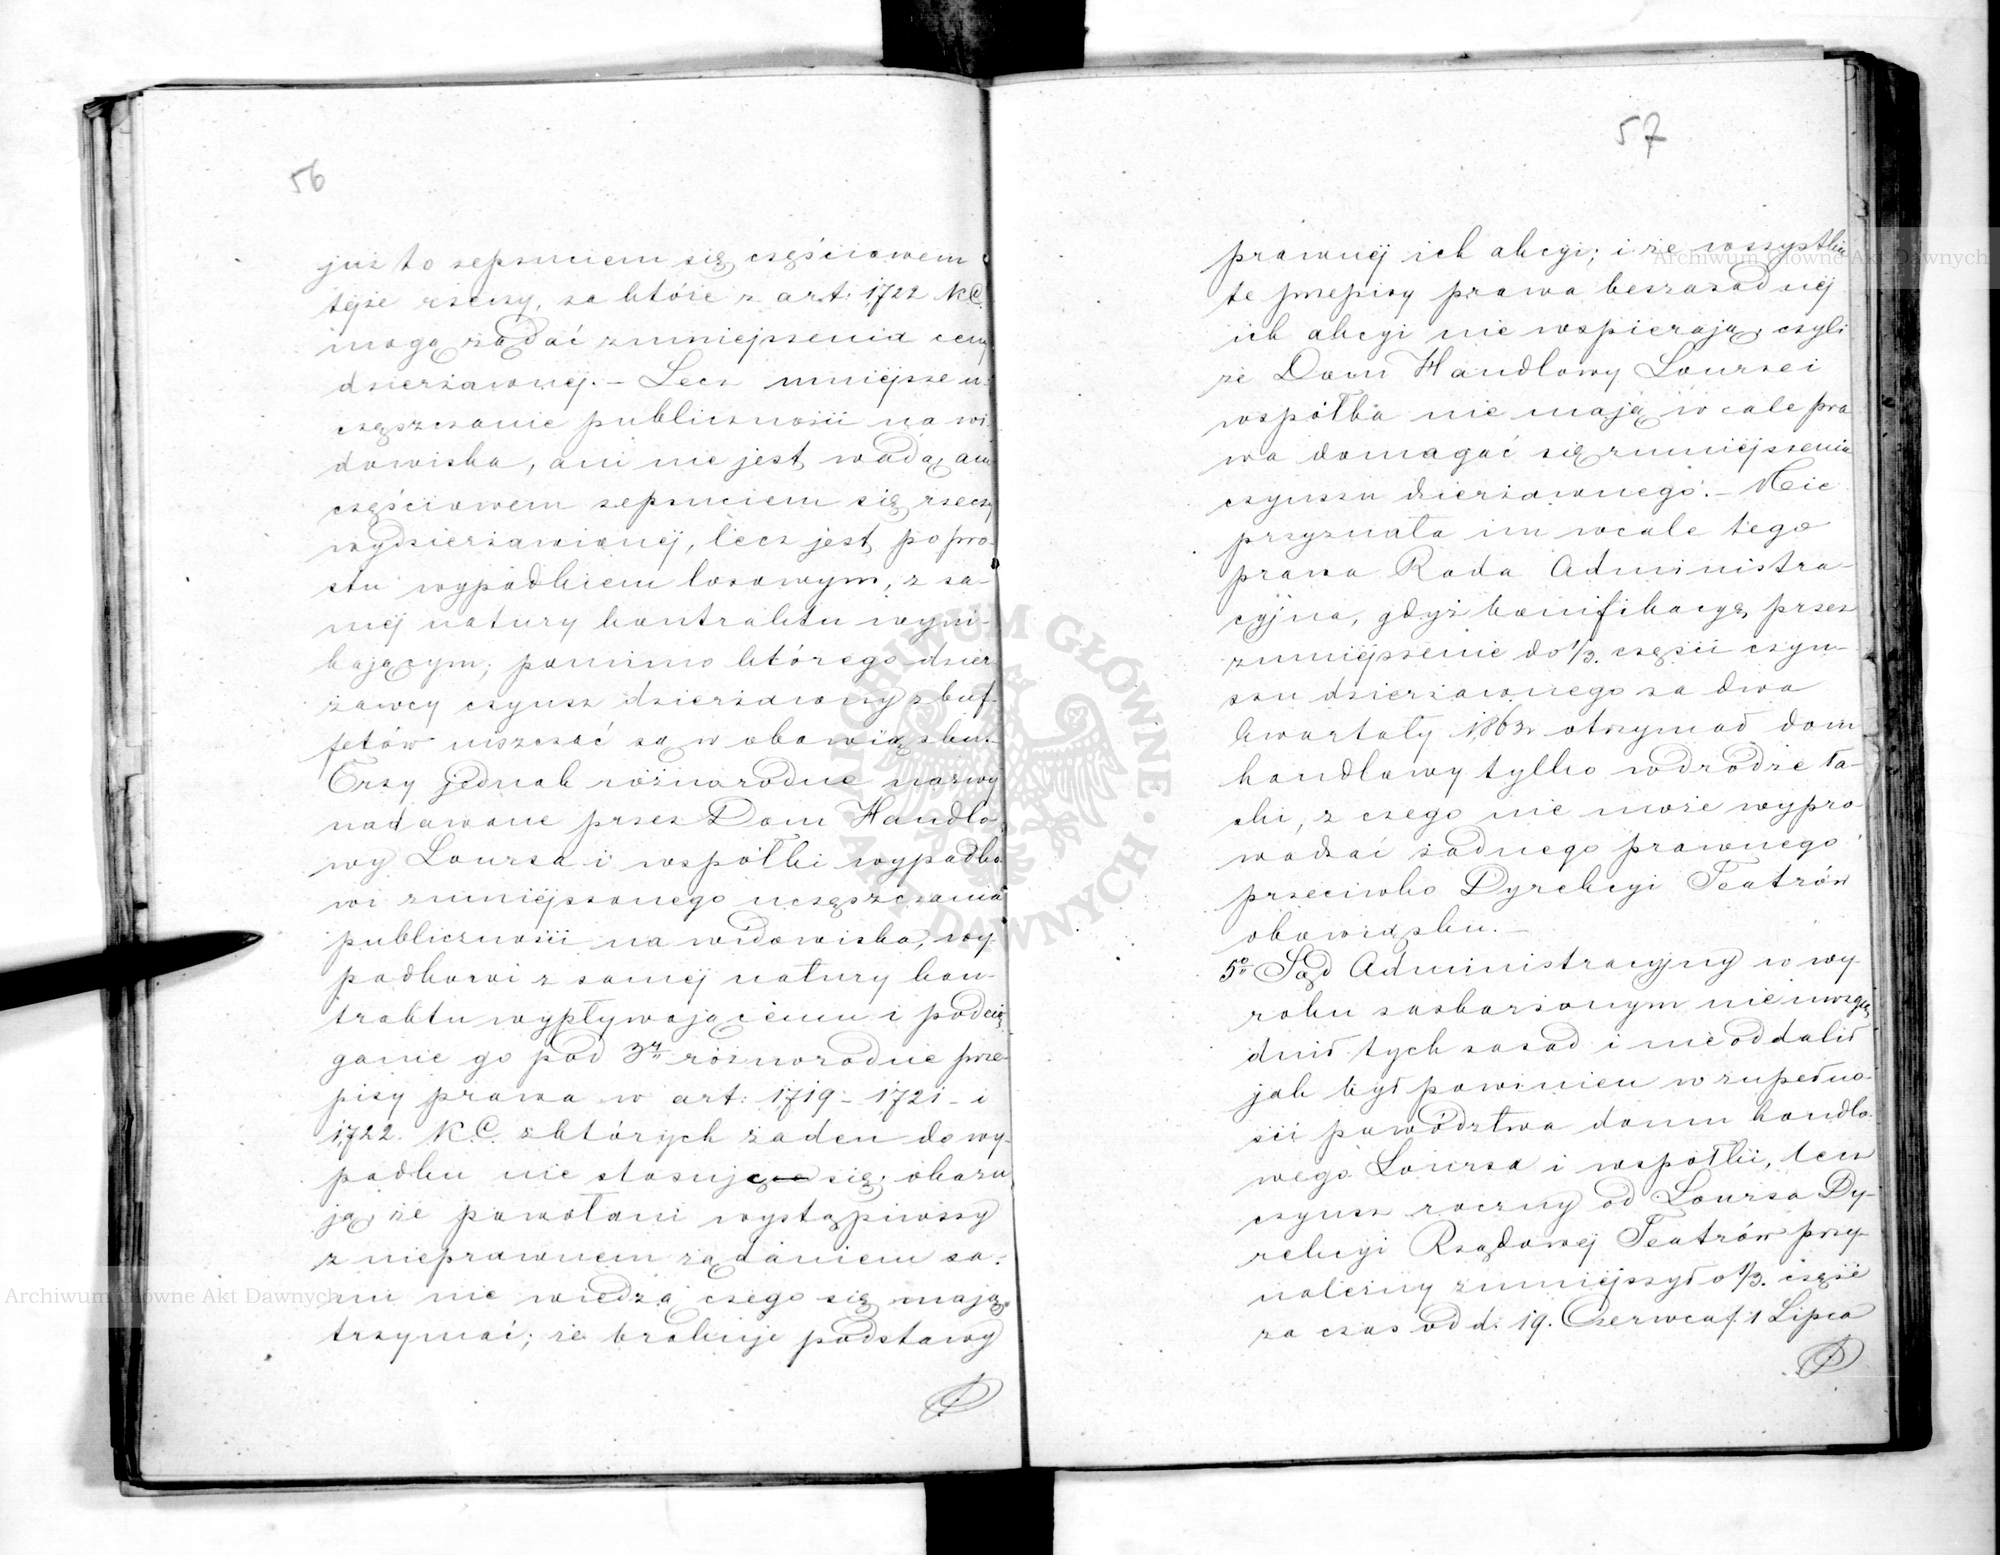 56
już to zepsuciem się częściowem
tejże rzeczy, za które z art: 1722 K.C.
mogą żądać zmniejszenia ceny
dzierżawnej. – Lecz mniejsze u-
częszczanie publiczności na wi-
dowiska, ani nie jest wadą, ani
częściowem zepsuciem się rzeczy
wydzierżawionej, lecz jest po pro-
stu wypadkiem losowym, z sa-
mej natury kontraktu wyni-
kającym, pomimo którego dzier-
żawcy czynsz dzierżawny z buf-
fetów uiszczać są w obowiązku.
Trzy jednak różnorodne nazwy
nadawane przez Dom Handlo-
wy Loursa i współki wypadko
wi zmniejszonego uczęszczania
publiczności na widowiska, wy-
padkowi z samej natury kon-
traktu wypływającemu i podcią
ganie go pod 3y różnorodne prze-
pisy prawa w art: 1719 – 1721 – i
1722. K.C. z których żaden do wy-
padku nie stosuje się; okazu
ją, że powołani wystąpiwszy
z nieprawnem żądaniem sa-
mi nie wiedzą czego się mają
trzymać; że brakuje podstawy
57
prawnej ich akcyi; i że wszystkie
te przepisy prawa bezzasadnej
ich akcyi nie wspierają, czyli
że Dom Handlowy Lourse i
współka nie mają wcale pra
wa domagać się zmniejszenia
czynszu dzierżawnego. – Nie
przyznała im wcale tego
prawa Rada Administra-
cyjna, gdyż bonifikacyą przez
zmniejszenie do 1/3. części czyn-
szu dzierżawnego za dwa
kwartały 1863r otrzymał dom
handlowy tylko w drodze ła-
ski, z czego nie może wypro
wadzać żadnego prawnego
przeciwko Dyrekcyi Teatrów
obowiązku. –
5o Sąd Administracyjny w wy-
roku zaskarżonym nie uwzglę
dnił tych zasad i nie oddalił
jak był powinien w zupełno-
ści powództwa domu handlo-
wego Loursa i współki, lecz
czynsz roczny od Loursa Dy-
rekcyi Rządowej Teatrów przy-
należny zmniejszył o 1/3. część
za czas od d. 19. Czerwca/1 Lipca
Archiwum Główne Akt Dawnych
Archiwum Główne Akt Dawnych
ARCHIWUM GŁÓWNE AKT DAWNYCH